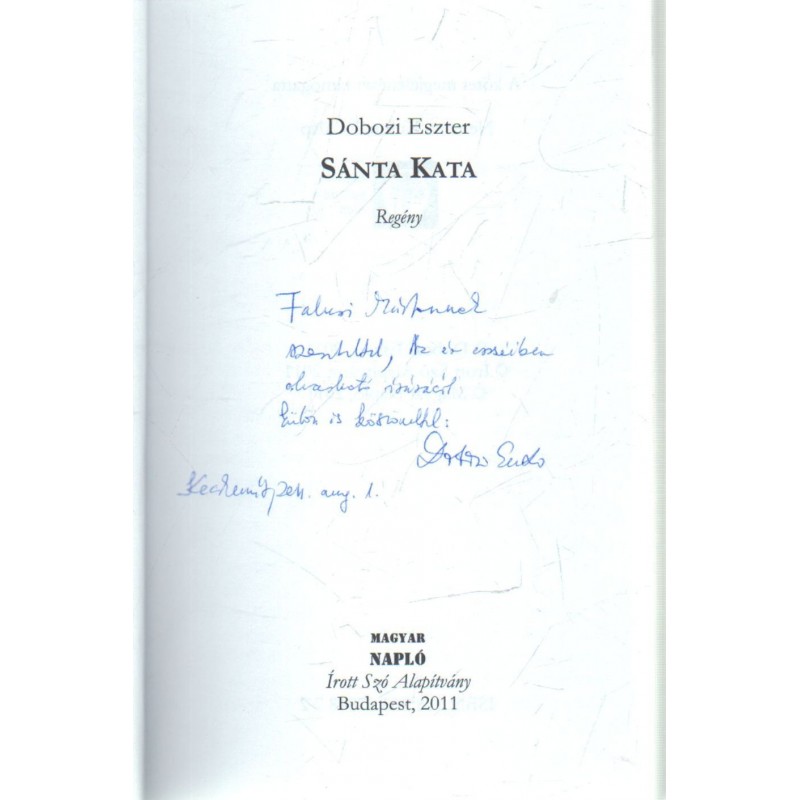 Dobozi Eszter
SÁNTA KATA
Regény
Falusi Mártonnak
szeretettel, Az én esszéiben
olvasható írásáért
külön is köszönettel:
Dobozi Eszter
Kecskemét, 2011. aug. 1.
MAGYAR
NAPLÓ
Írott Szó Alapítvány
Budapest, 2011